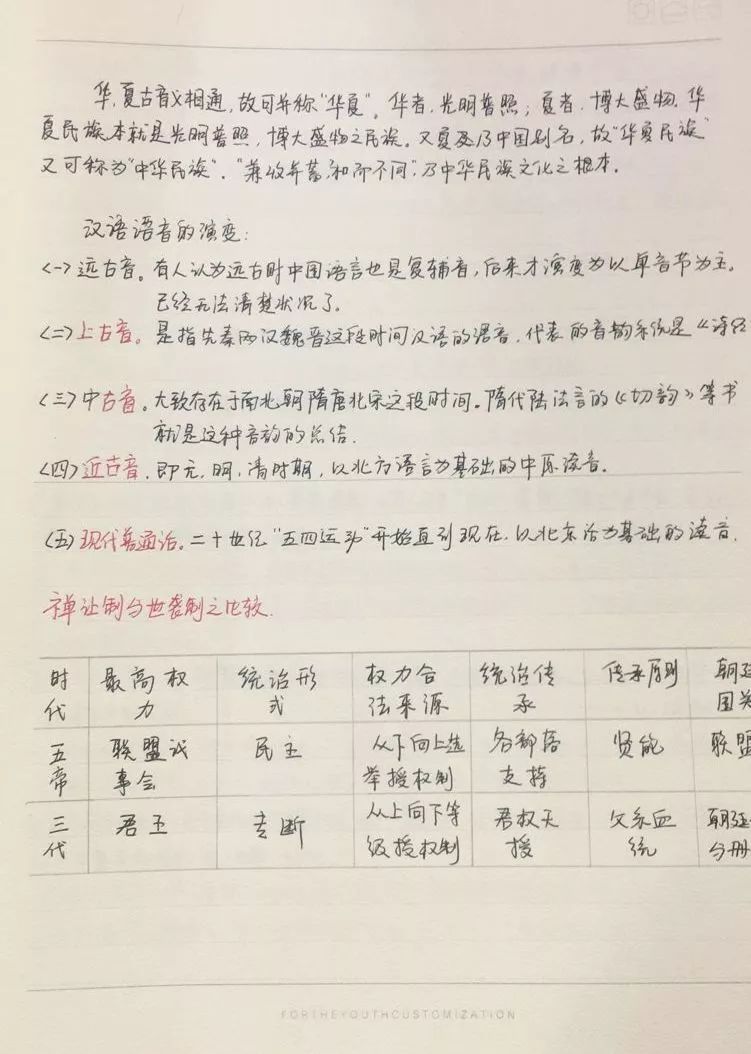 华,夏古音义相通,故可并称"华夏"。华者,光明普照;夏者,博大盛物.华
夏民族本就是光明普照,博大盛物之民族。又夏及乃中国别名,故"华夏民族"
又可称为"中华民族"."兼收并蓄,和而不同",乃中华民族文化之根本.
汉语语音的演变:
<一>远古音。有人认为远古时中国语言也是复辅音,后来才演变为以单音节为主。
已经无法清楚状况了。
<二>上古音。是指先秦两汉魏晋这段时间汉语的语音.代表的音韵系统是《诗经
<三>中古音。大致存在于南北朝隋唐北宋这段时间。隋代陆法言的《切韵》等书
就是这种音韵的总结.
<四>近古音.即元,明,清时期,以北方语言为基础的中原读音。
<五>现代普通话。二十世纪"五四运动"开始直到现在.以北京话为基础的读音.
禅让制与世袭制之比较.
时代 最高权力 统治形式 权力合法来源 统治传承 传承原则 朝廷 国关
五帝 联盟议事会 民主 从下向上选举授权制 各部落支持 贤能 联盟
三代 君王 专断 从上向下等级授权制 君权天授 父系血统 朝廷 与册
FORTHEYOUTHCUSTOMIZATION